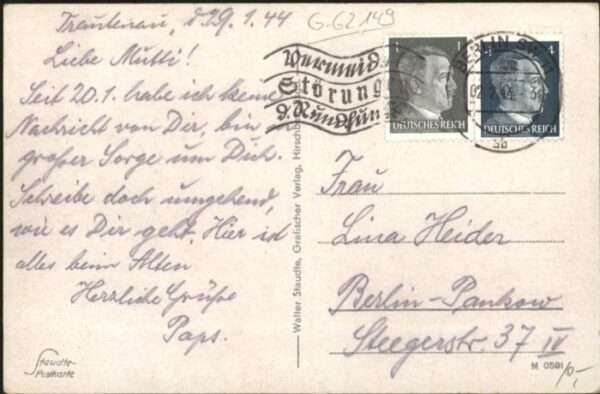 Trautenau, d. 29.1.44
G-G2149
Liebe Mutti!
Seit 20.1. habe ich keine
Nachricht von Dir, bin in
großer Sorge um Dich.
Schreibe doch umgehend,
wie es Dir geht. Hier ist
alles beim Alten
Herzliche Grüße
Paps.
Staudte-
Postkarte
Walter Staudte, Grafischer Verlag, Hirschb
Vermeid
Störung
d. Rundfun
1
DEUTSCHES REICH
4
DEUTSCHES REICH
BERLIN SW
Frau
Lina Heider
Berlin-Pankow
Steegerstr. 37 IV
M 0591